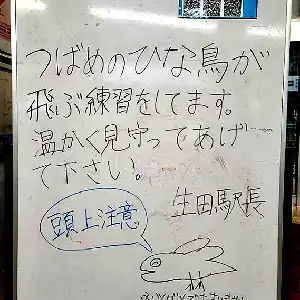 つばめのひな鳥が
飛ぶ練習をしてます。
温かく見守ってあげ
て下さい。
生田駅長
頭上注意